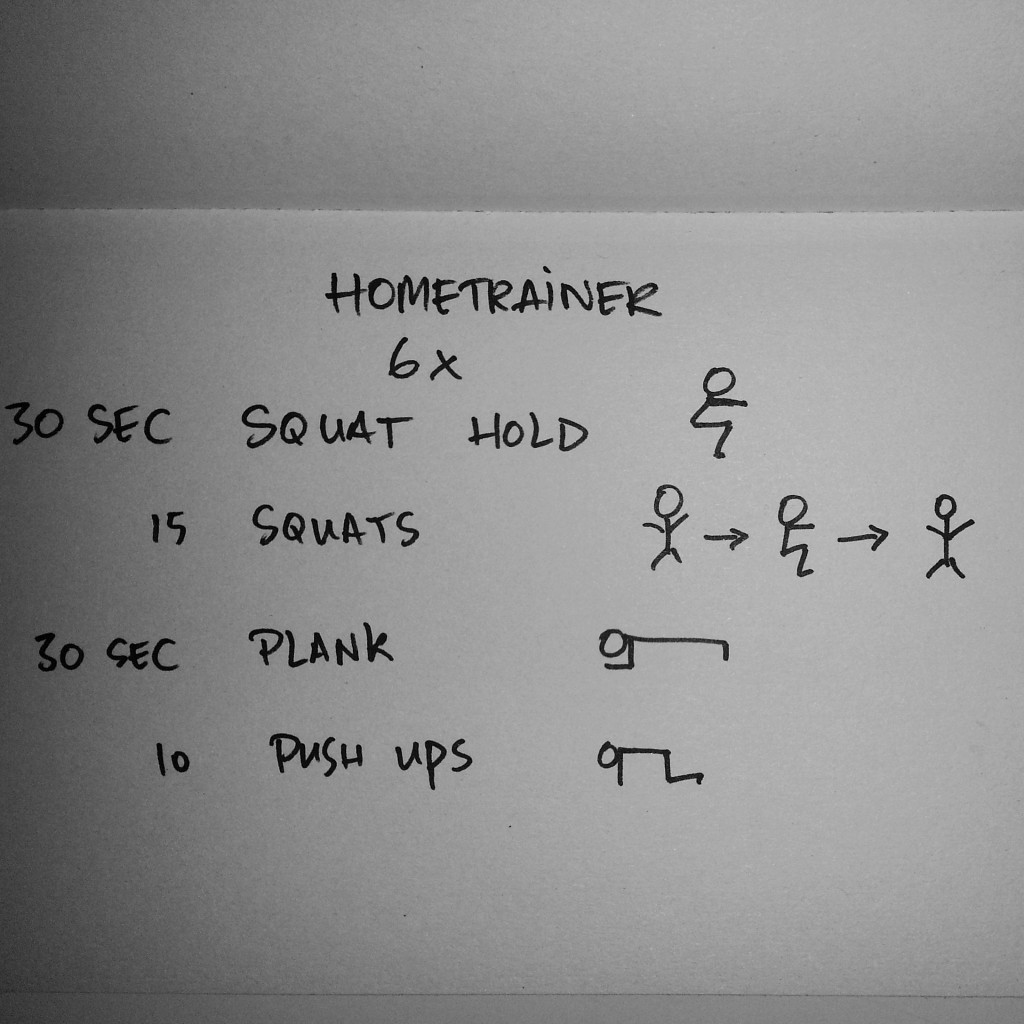 HOMETRAINER
6x
30 SEC SQUAT HOLD
15 SQUATS
30 SEC PLANK
10 PUSH UPS